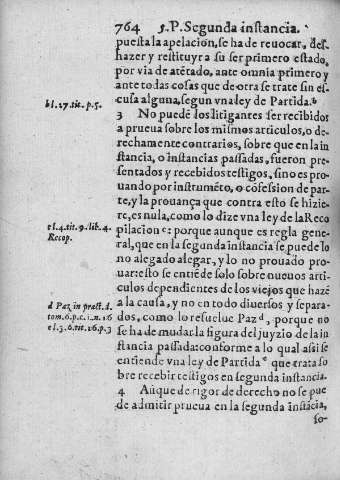 764 5.P. Segunda instancia.
puesta la apelacion, se ha de reuocar, des-
hazer y restituyr a su ser primero estado,
por via de atẽtado, ante omnia primero y
ante todas cosas que de otra se trate sin es-
cusa alguna, segun vna ley de Partida. b
b l.27.tit.p.5.
3 No puedẽ los litigantes ser recibidos
a prueua sobre los mismos articulos, o de-
rechamente contrarios, sobre que en la in
stancia, o instancias passadas, fueron pre-
sentados y recebidos testigos, sino es pro-
uando por instrumẽto, o cõfesion de par-
te, y la prouança que contra esto se hizie-
re, es nula, como lo dize vna ley de la Reco
pilacion c: porque aunque es regla gene-
c l.4.tit.9.lib.4.
Recop.
ral, que en la segunda instancia se puede lo
no alegado alegar, y lo no prouado pro-
uar: esto se entiẽde solo sobre nueuos arti-
culos dependientes de los viejos que hazẽ
a la causa, y no en todo diuersos y separa-
d Paz in pract. 1.
tom.6.p.c.1.n.16
e l.3.6.tit.16.p.3
dos, como lo resuelue Paz d, porque no
se ha de mudar la figura del juyzio de la in
stancia passada: conforme a lo qual assi se
entiende vna ley de Partida e que trata so
bre recebir testigos en segunda instancia.
4 Aũque de rigor de derecho no se pue
de admitir prueua en la segunda instãcia,
so-